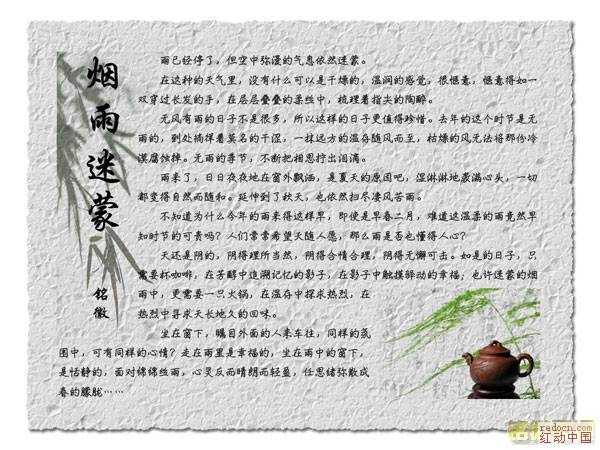 烟雨迷蒙
铭徽
雨已经停了，但空中弥漫的气息依然迷蒙。
在这种的天气里，没有什么可以是干燥的，温润的感觉，很惬意，惬意得如一
双穿过长发的手，在层层叠叠的柔丝中，梳理着指尖的陶醉。
无风有雨的日子不是很多，所以这样的日子更值得珍惜。去年的这个时节是无
雨的，到处搞得着莫名的干涩，一抹远方的温存随风而至，枯燥的风无法将那份冷
漠腐蚀掉。无雨的季节，不断把相思拧出泪滴。
雨来了，日日夜夜地在窗外飘洒，是夏天的原因吧，湿淋淋地蓑满心头，一切
都变得自然而随和。延伸到了秋天，也依然扫尽凄风苦雨。
不知道为什么今年的雨来得这样早，即使是早春二月，难道这温柔的雨竟然早
知时节的可贵吗？人们常常希望天随人愿，那么雨是否也懂得人心？
天还是阴的，阴得理所当然，阴得合情合理，阴得无懈可击。如是的日子，只
需要杯咖啡，在芳醇中追溯记忆的影子，在影子中触摸骅动的幸福，也许迷蒙的烟
雨中，更需要一只火锅，在温存中探求热烈，在
热烈中寻求天长地久的回味。
坐在窗下，瞩目外面的人来车往，同样的氛
围中，可有同样的心情？走在雨里是幸福的，坐在雨中的窗下，
是恬静的，面对绵绵丝雨，心灵反而晴朗而轻盈，任思绪弥散成
春的朦胧……
redocn.com
红动中国